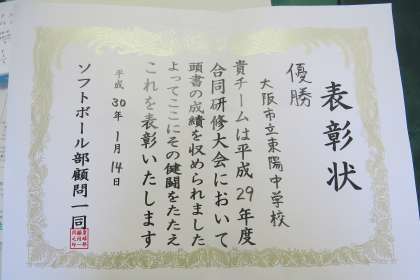 表彰状
優勝
大阪市立東陽中学校
貴チームは平成29年度
合同研修大会において
頭書の成績を収められました
よってここにその健闘をたたえ
これを表彰いたします
平成30年1月14日
ソフトボール部顧問一同